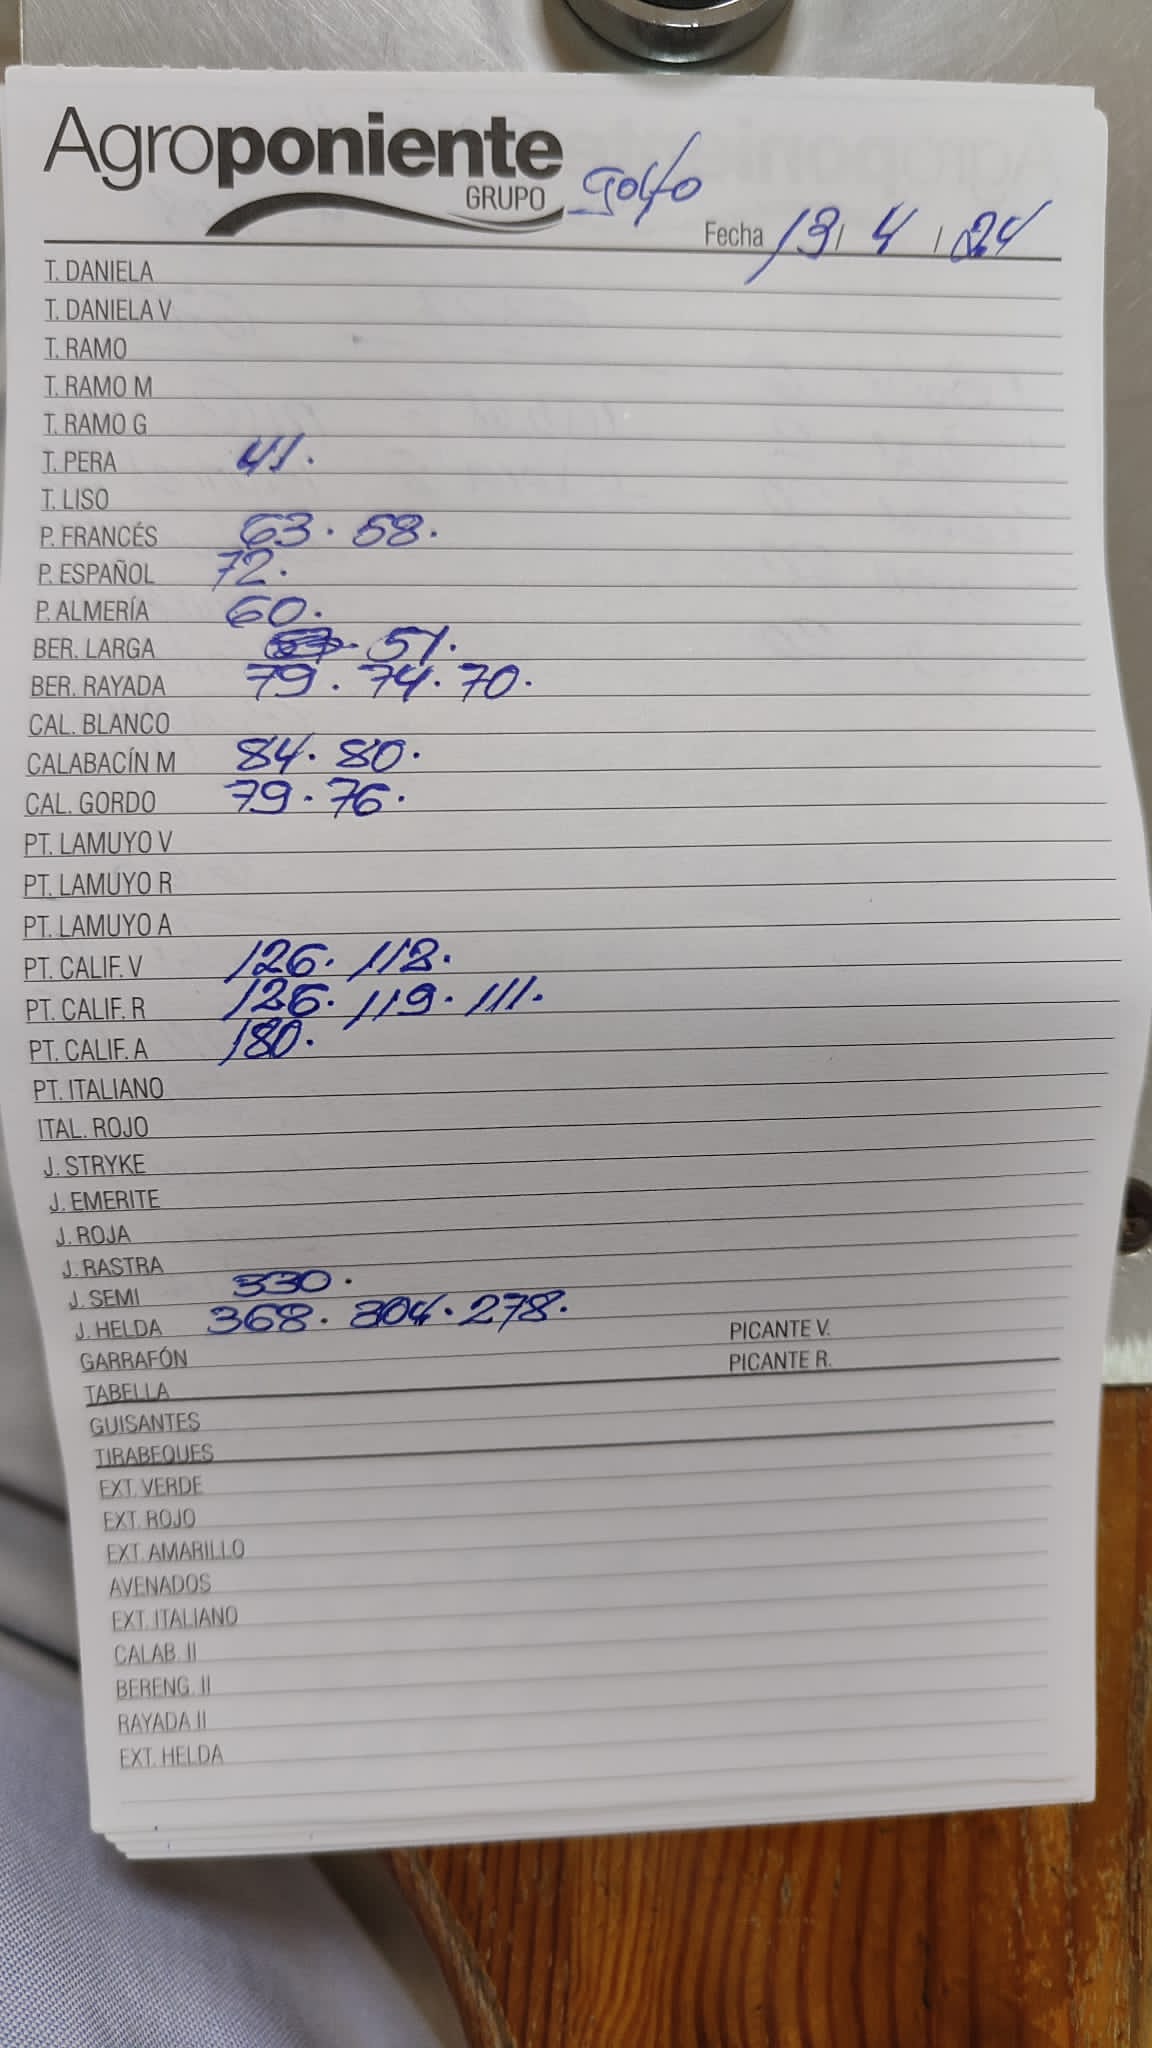 Agroponiente
GRUPO
Golfo
Fecha 13/ 4 / 24
T. DANIELA
T. DANIELA V
T. RAMO
T. RAMO M
T. RAMO G
T. PERA 41.
T. LISO
P. FRANCÉS 63. 58.
P. ESPAÑOL 72.
P. ALMERÍA 60.
BER. LARGA 51.
BER. RAYADA 79. 74. 70.
CAL. BLANCO
CALABACÍN M 84. 80.
CAL. GORDO 79. 76.
PT. LAMUYO V
PT. LAMUYO R
PT. LAMUYO A
PT. CALIF. V 126. 118.
PT. CALIF. R 126. 119. 111.
PT. CALIF. A 180.
PT. ITALIANO
ITAL. ROJO
J. STRYKE
J. EMERITE
J. ROJA
J. RASTRA
J. SEMI 330.
J. HELDA 368. 304. 278.
GARRAFÓN PICANTE V.
TABELLA PICANTE R.
GUISANTES
TIRABEQUES
EXT. VERDE
EXT. ROJO
EXT. AMARILLO
AVENADOS
EXT. ITALIANO
CALAB. II
BERENG. II
RAYADA II
EXT. HELDA